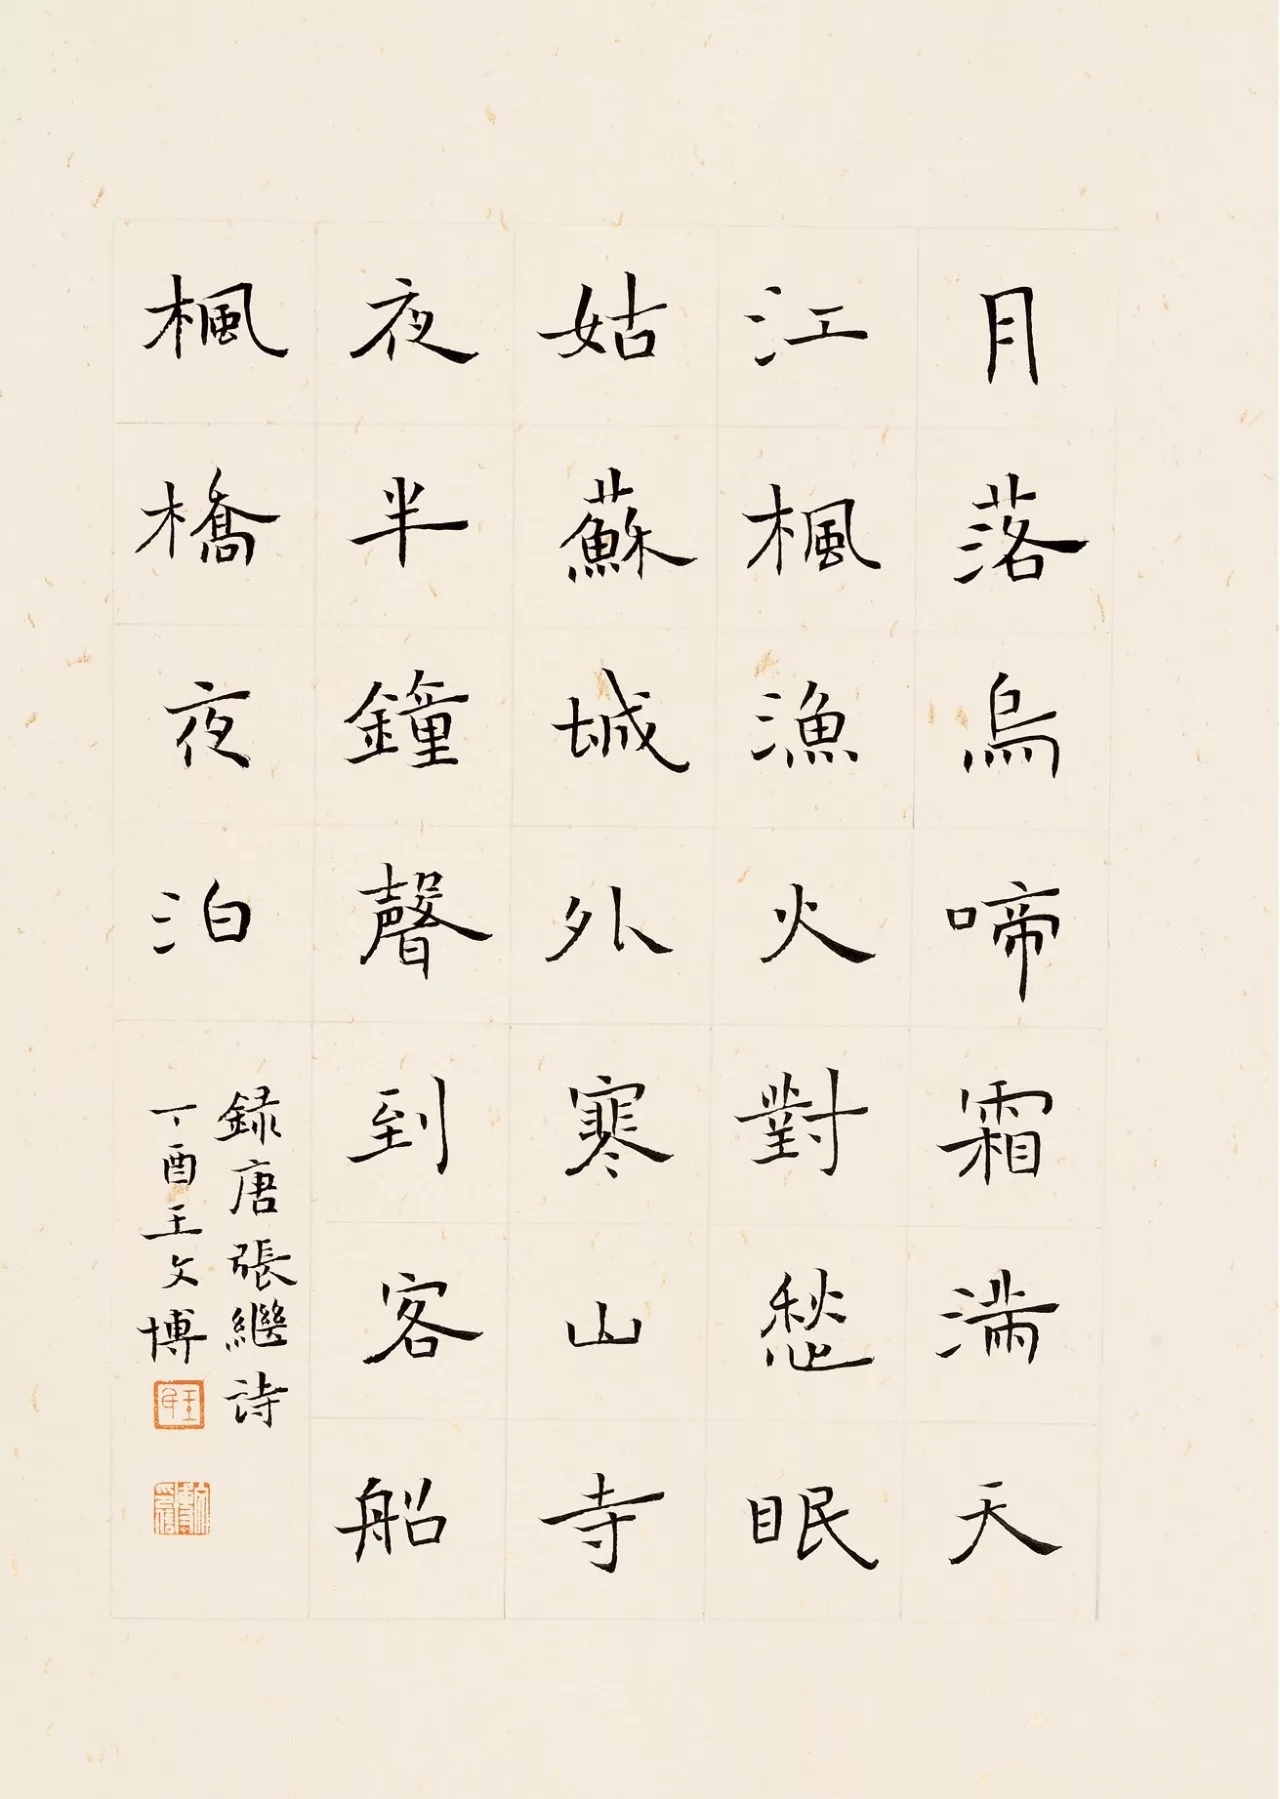 月落烏啼霜满天
江楓漁火對愁眠
姑蘇城外寒山寺
夜半鐘聲到客船
楓橋夜泊
録唐張繼詩
丁酉王文博